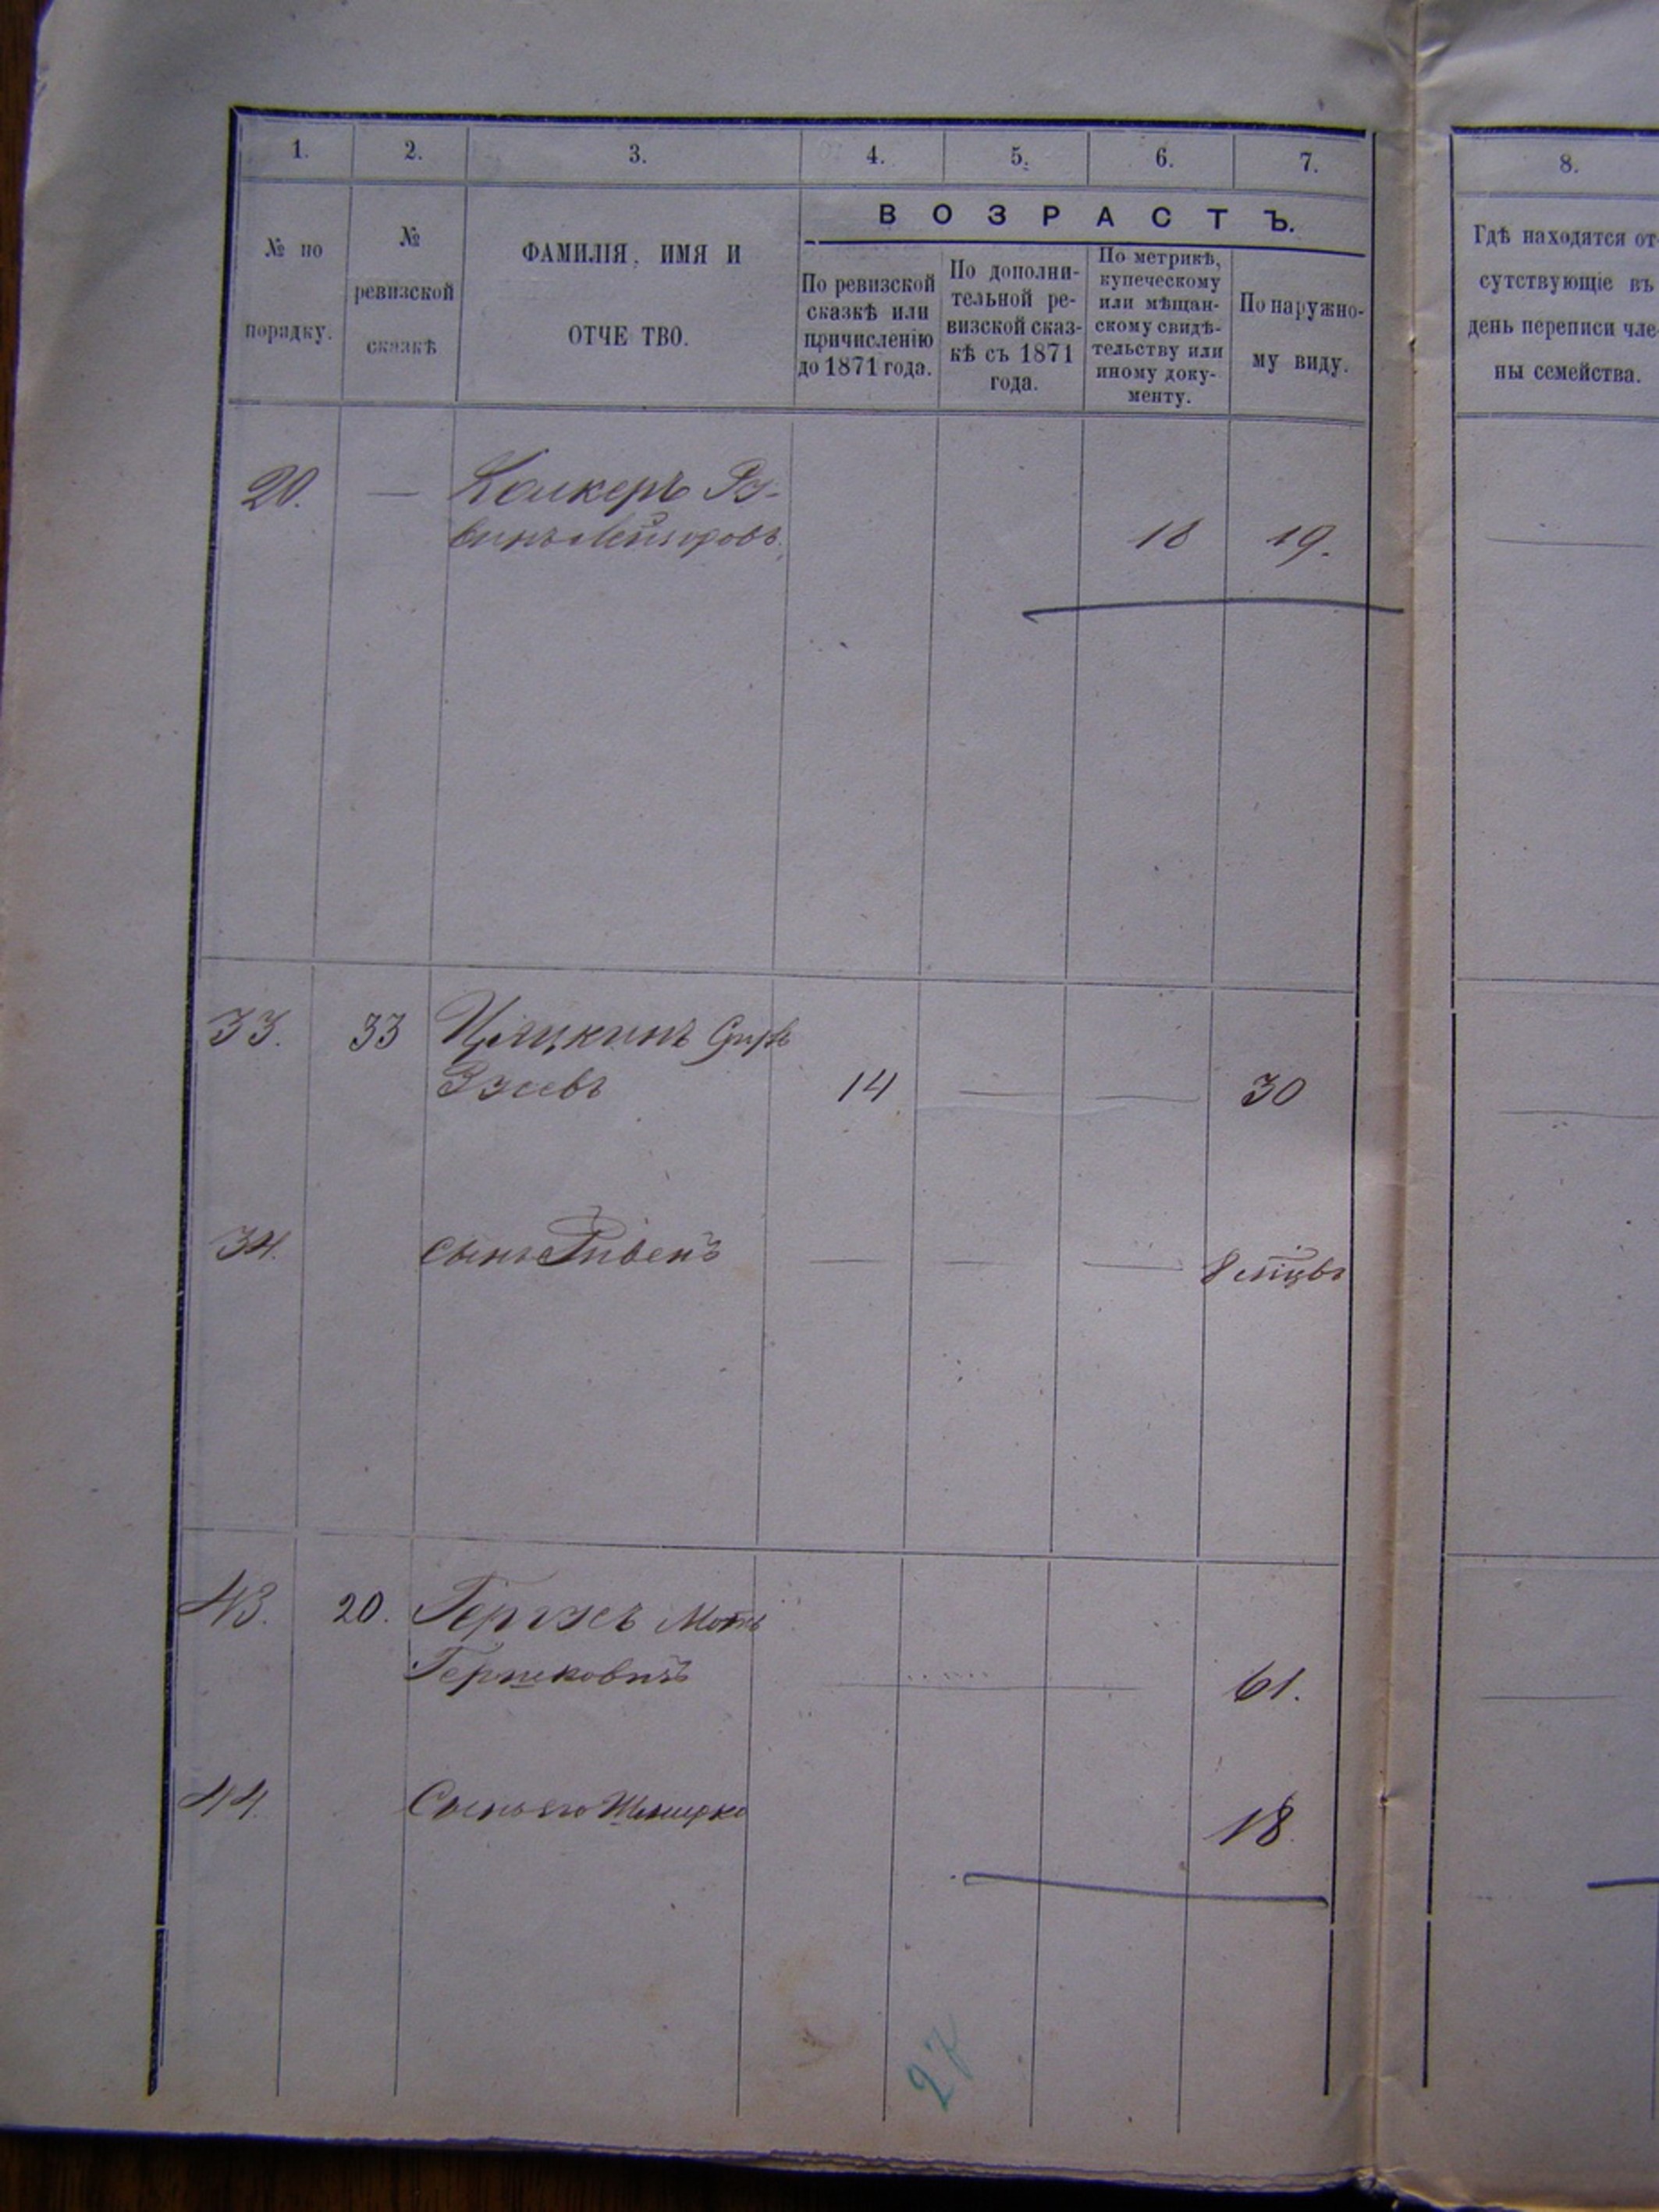 1.
2.
3.
4.
5.
6.
7.
8.
№ по порядку.
№ ревизской сказкѣ
ФАМИЛІЯ, ИМЯ И
ОТЧЕ ТВО.
ВОЗРАСТЪ.
По ревизской
сказкѣ или
причисленію
до 1871 года.
По дополни-
тельной ре-
визской сказ-
кѣ съ 1871
года.
По метрикѣ,
купеческому
или мѣщан-
скому свидѣ-
тельству или
иному доку-
менту.
По наружно-
му виду.
Гдѣ находятся от-
сутствующіе въ
день переписи чле-
ны семейства.
20. —
18 19.
33. 33
14 — — 30
34. сынъ Рывенъ — — —
43. 20.
Гершковичъ 61.
44. Сынъ его 18.
27